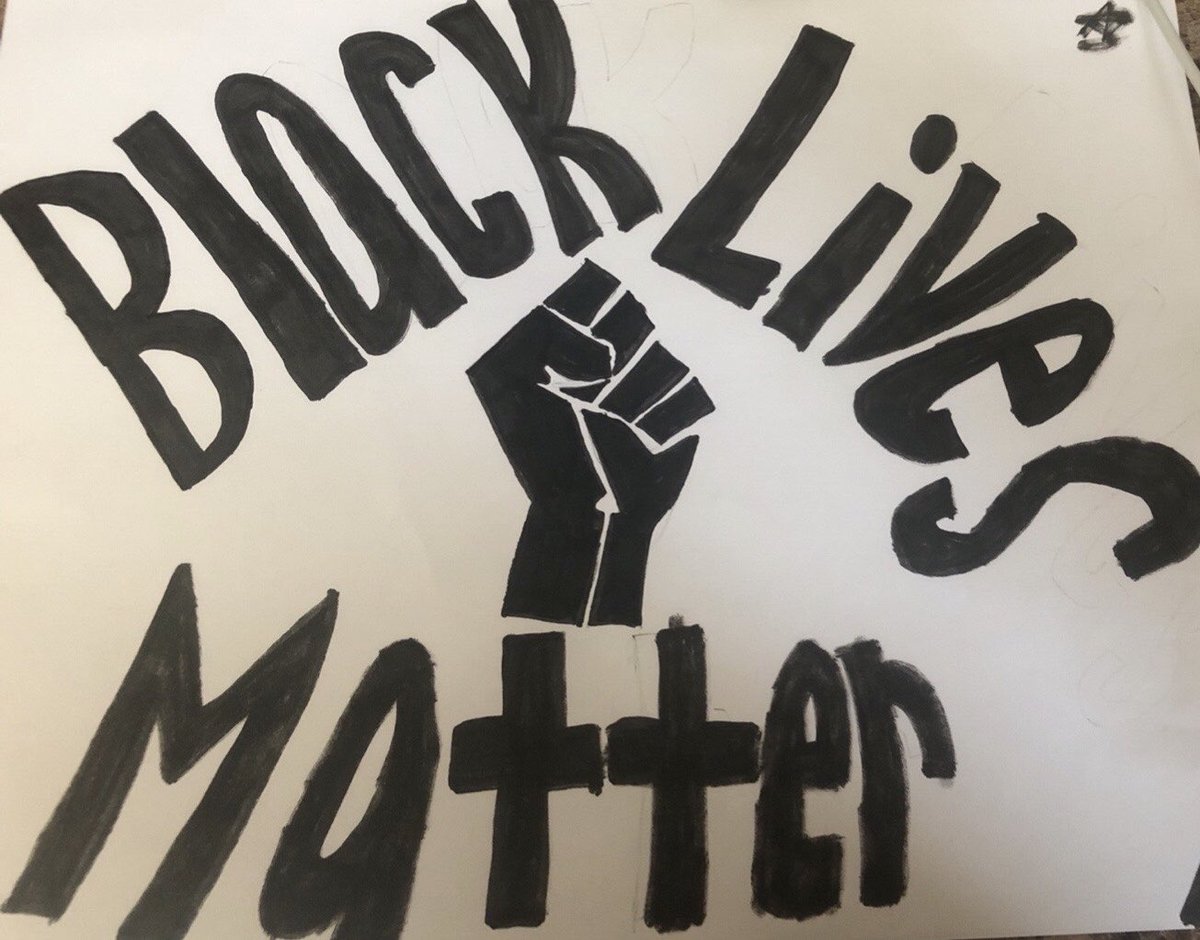 Black Lives
Matter